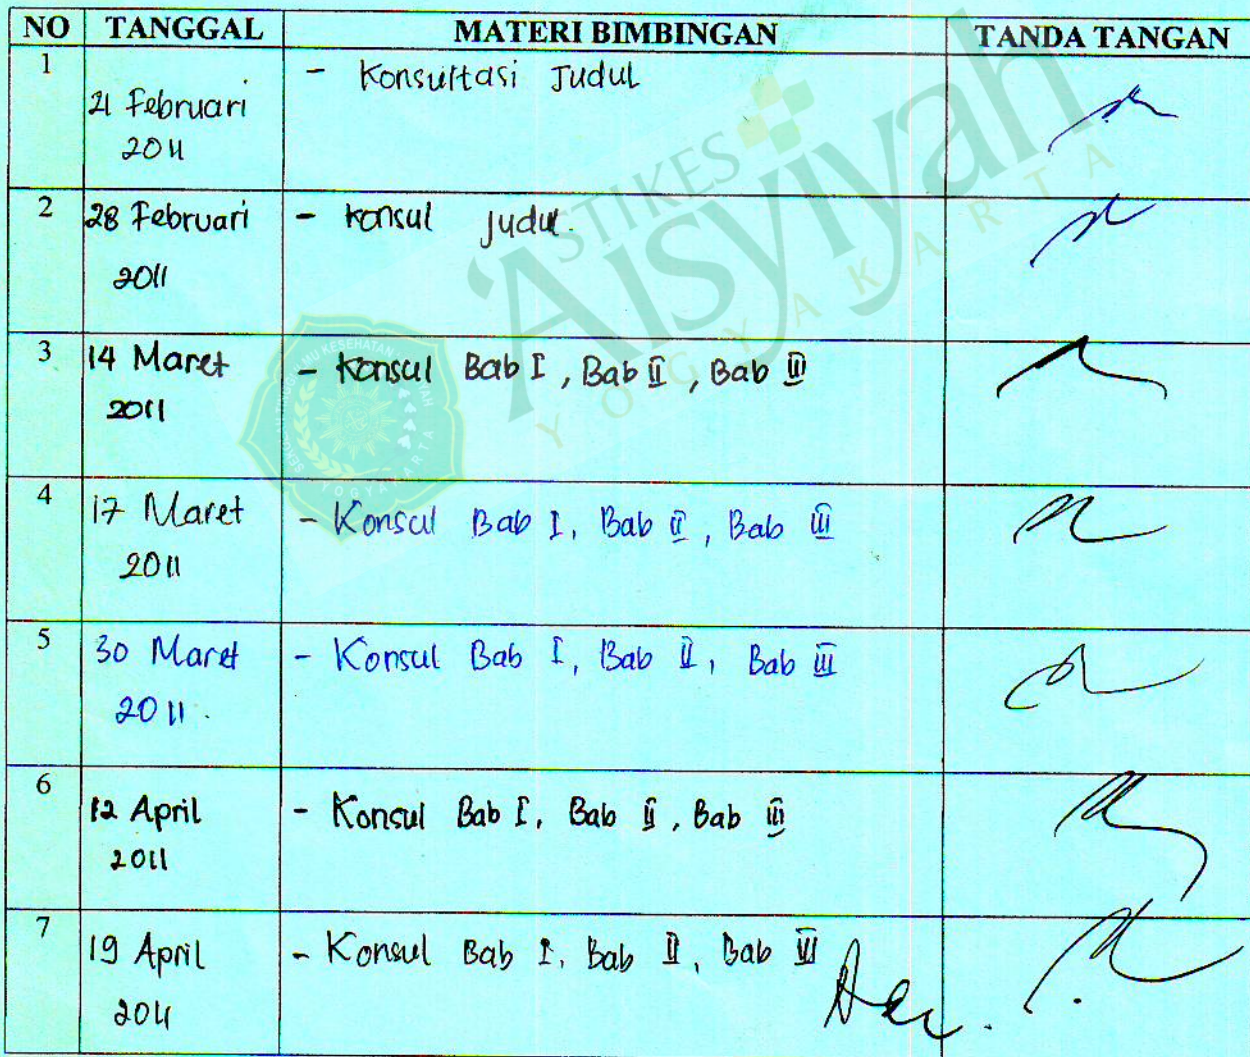 NO TANGGAL MATERI BIMBINGAN TANDA TANGAN
1 21 Februari 2011 - Konsultasi Judul
2 28 Februari 2011 - Konsul judul.
3 14 Maret 2011 - Konsul Bab I, Bab II, Bab III
4 17 Maret 2011 - Konsul Bab I, Bab II, Bab III
5 30 Maret 2011. - Konsul Bab I, Bab II, Bab III
6 12 April 2011 - Konsul Bab I, Bab II, Bab III
7 19 April 2011 - Konsul Bab I, Bab II, Bab III
STIKES
'Aisyiyah
YOGYAKARTA